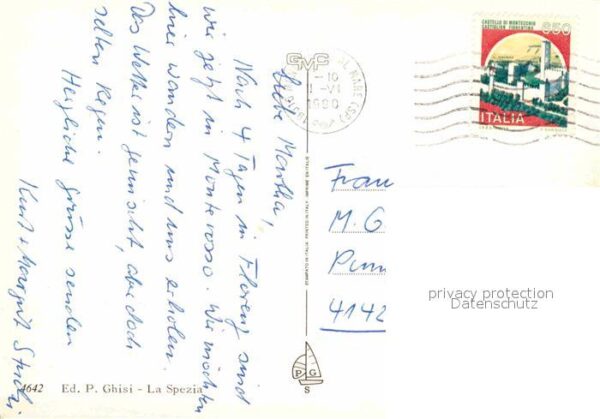 Liebe Martha,
Nach 4 Tagen in Florenz sind
wir jetzt in Monterosso. Wir möchten
hier wandern und uns erholen.
Das Wetter ist gemischt, aber doch
selten Regen.
Herzliche Grüsse senden
Kurt + Margrit
GMC
10
VI
1990
CASTELLO DI MONTECCHIO
CASTIGLION FIORENTINO
650
ITALIA
STAMPATO IN ITALIA - PRINTED IN ITALY - IMPRIMÉ EN ITALIE
Frau
M. G
4142
privacy protection
Datenschutz
4642 Ed. P. Ghisi - La Spezia
P G
S